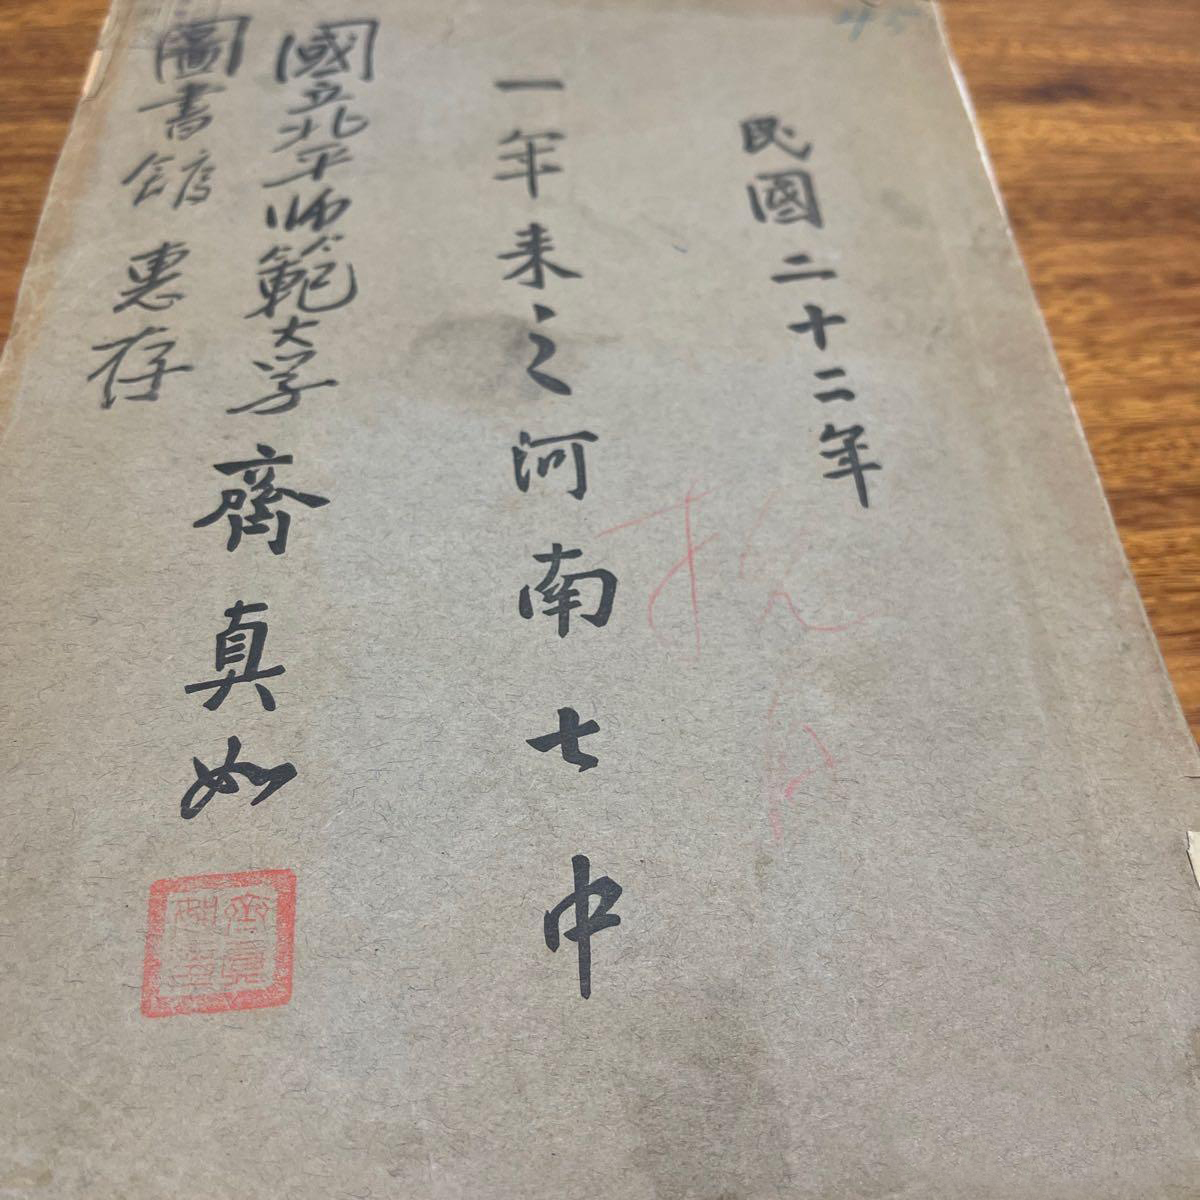 民國二十二年
一年来之河南七中
國立北平师範大学
圖書館 惠存
齊真如
45